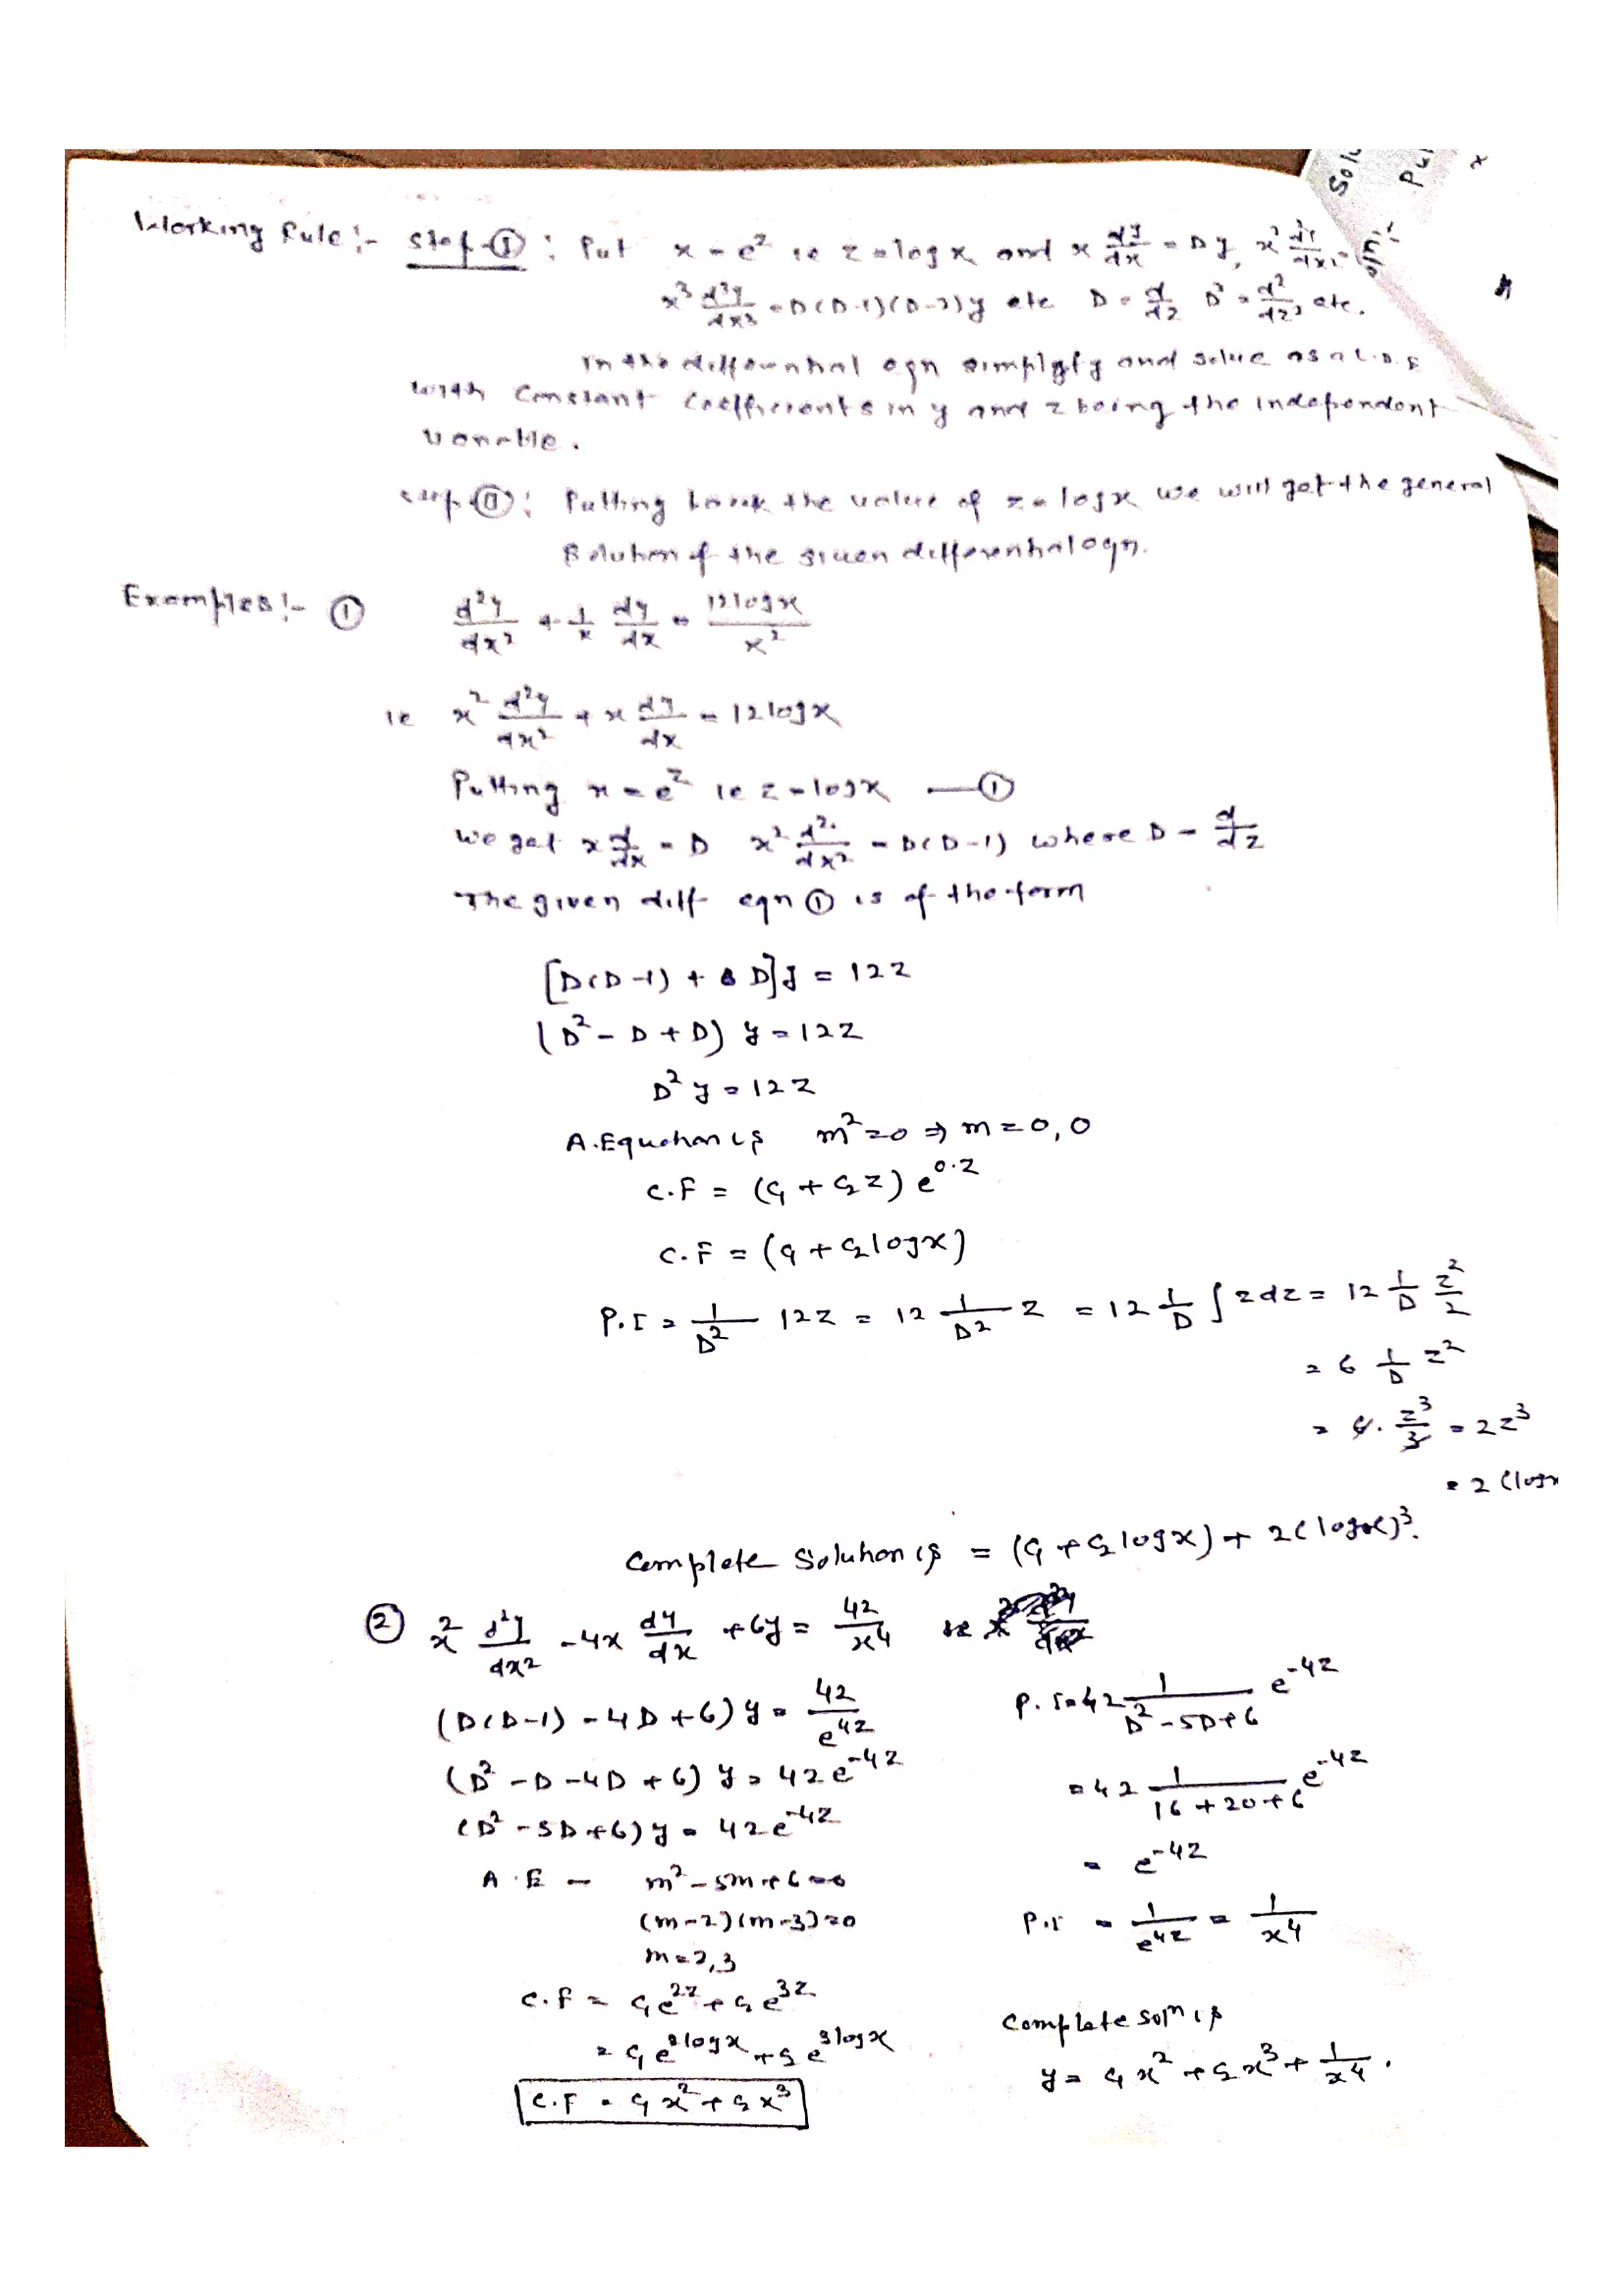 Working Rule :- Step-① : Put x = e^z ie z = log x and x dy/dx = Dy, x² d²y/dx² =
x³ d³y/dx³ = D(D-1)(D-2)y etc D = d/dz D² = d²/dz², etc.
In the differential eqn simplify and solve as a L.D.E
with Constant Coefficients in y and z being the independent
variable.
Step ②: Putting back the value of z = log x we will get the general
Solution of the given differential eqn.
Examples :- ① d²y/dx² + 1/x dy/dx = 12 log x/x²
ie x² d²y/dx² + x dy/dx = 12 log x
Putting x = e^z ie z = log x —①
we get x d/dx = D x² d²/dx² = D(D-1) where D = d/dz
The given diff eqn ① is of the form
[D(D-1) + D]y = 12z
(D² - D + D) y = 12z
D² y = 12z
A.Equation is m² = 0 ⇒ m = 0, 0
C.F = (C₁ + C₂ z) e^{0.z}
C.F = (C₁ + C₂ log x)
P.I = 1/D² 12z = 12 1/D² z = 12 1/D ∫ z dz = 12 1/D z²/2
= 6 1/D z²
= 6 . z³/3 = 2z³
= 2 (log x
Complete Solution is = (C₁ + C₂ log x) + 2(log x)³.
② x² d²y/dx² - 4x dy/dx + 6y = 42/x⁴ ie
(D(D-1) - 4D + 6) y = 42/e^{4z}
(D² - D - 4D + 6) y = 42 e^{-4z}
(D² - 5D + 6) y = 42 e^{-4z}
A.E — m² - 5m + 6 = 0
(m-2)(m-3) = 0
m = 2, 3
C.F = C₁e^{2z} + C₂e^{3z}
= C₁e^{2 log x} + C₂e^{3 log x}
C.F = C₁x² + C₂x³
P.I = 42 1/(D² - 5D + 6) e^{-4z}
= 42 1/(16 + 20 + 6) e^{-4z}
= e^{-4z}
P.I = 1/e^{4z} = 1/x⁴
Complete soln is
y = C₁x² + C₂x³ + 1/x⁴.